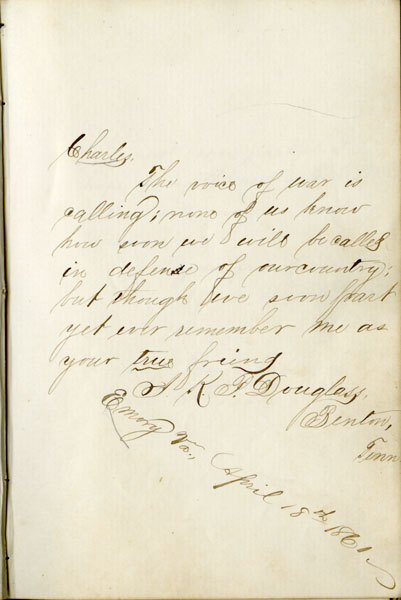 Charles.
The voice of war is
calling; none of us know
how soon we will be called
in defense of our country;
but though we soon part
yet ever remember me as
your true friend
K. P. Douglass,
Benton,
Tenn
Emory Va., April 18th 1861